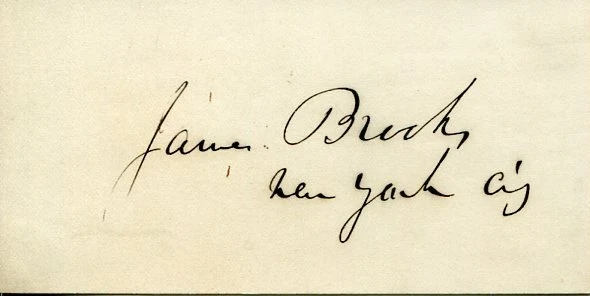 James Brooks
New York City